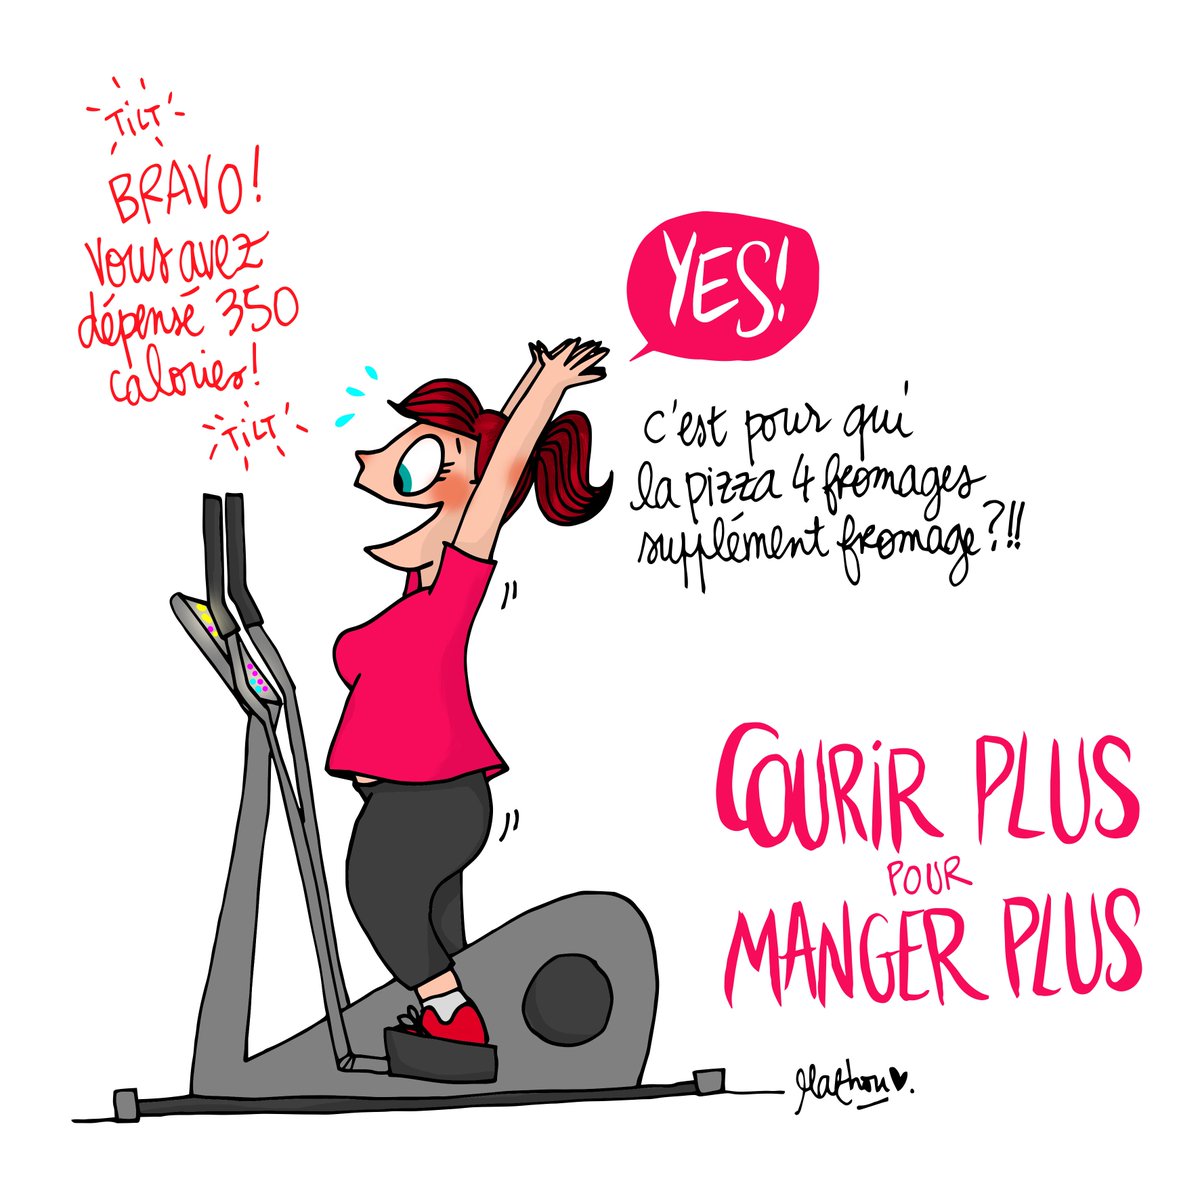 TiLT
BRAVO!
Vous avez
dépensé 350
calories!
TiLT
YES!
c'est pour qui
la pizza 4 fromages
supplément fromage?!!
COURiR PLUS
POUR
MANGER PLUS
Mathou